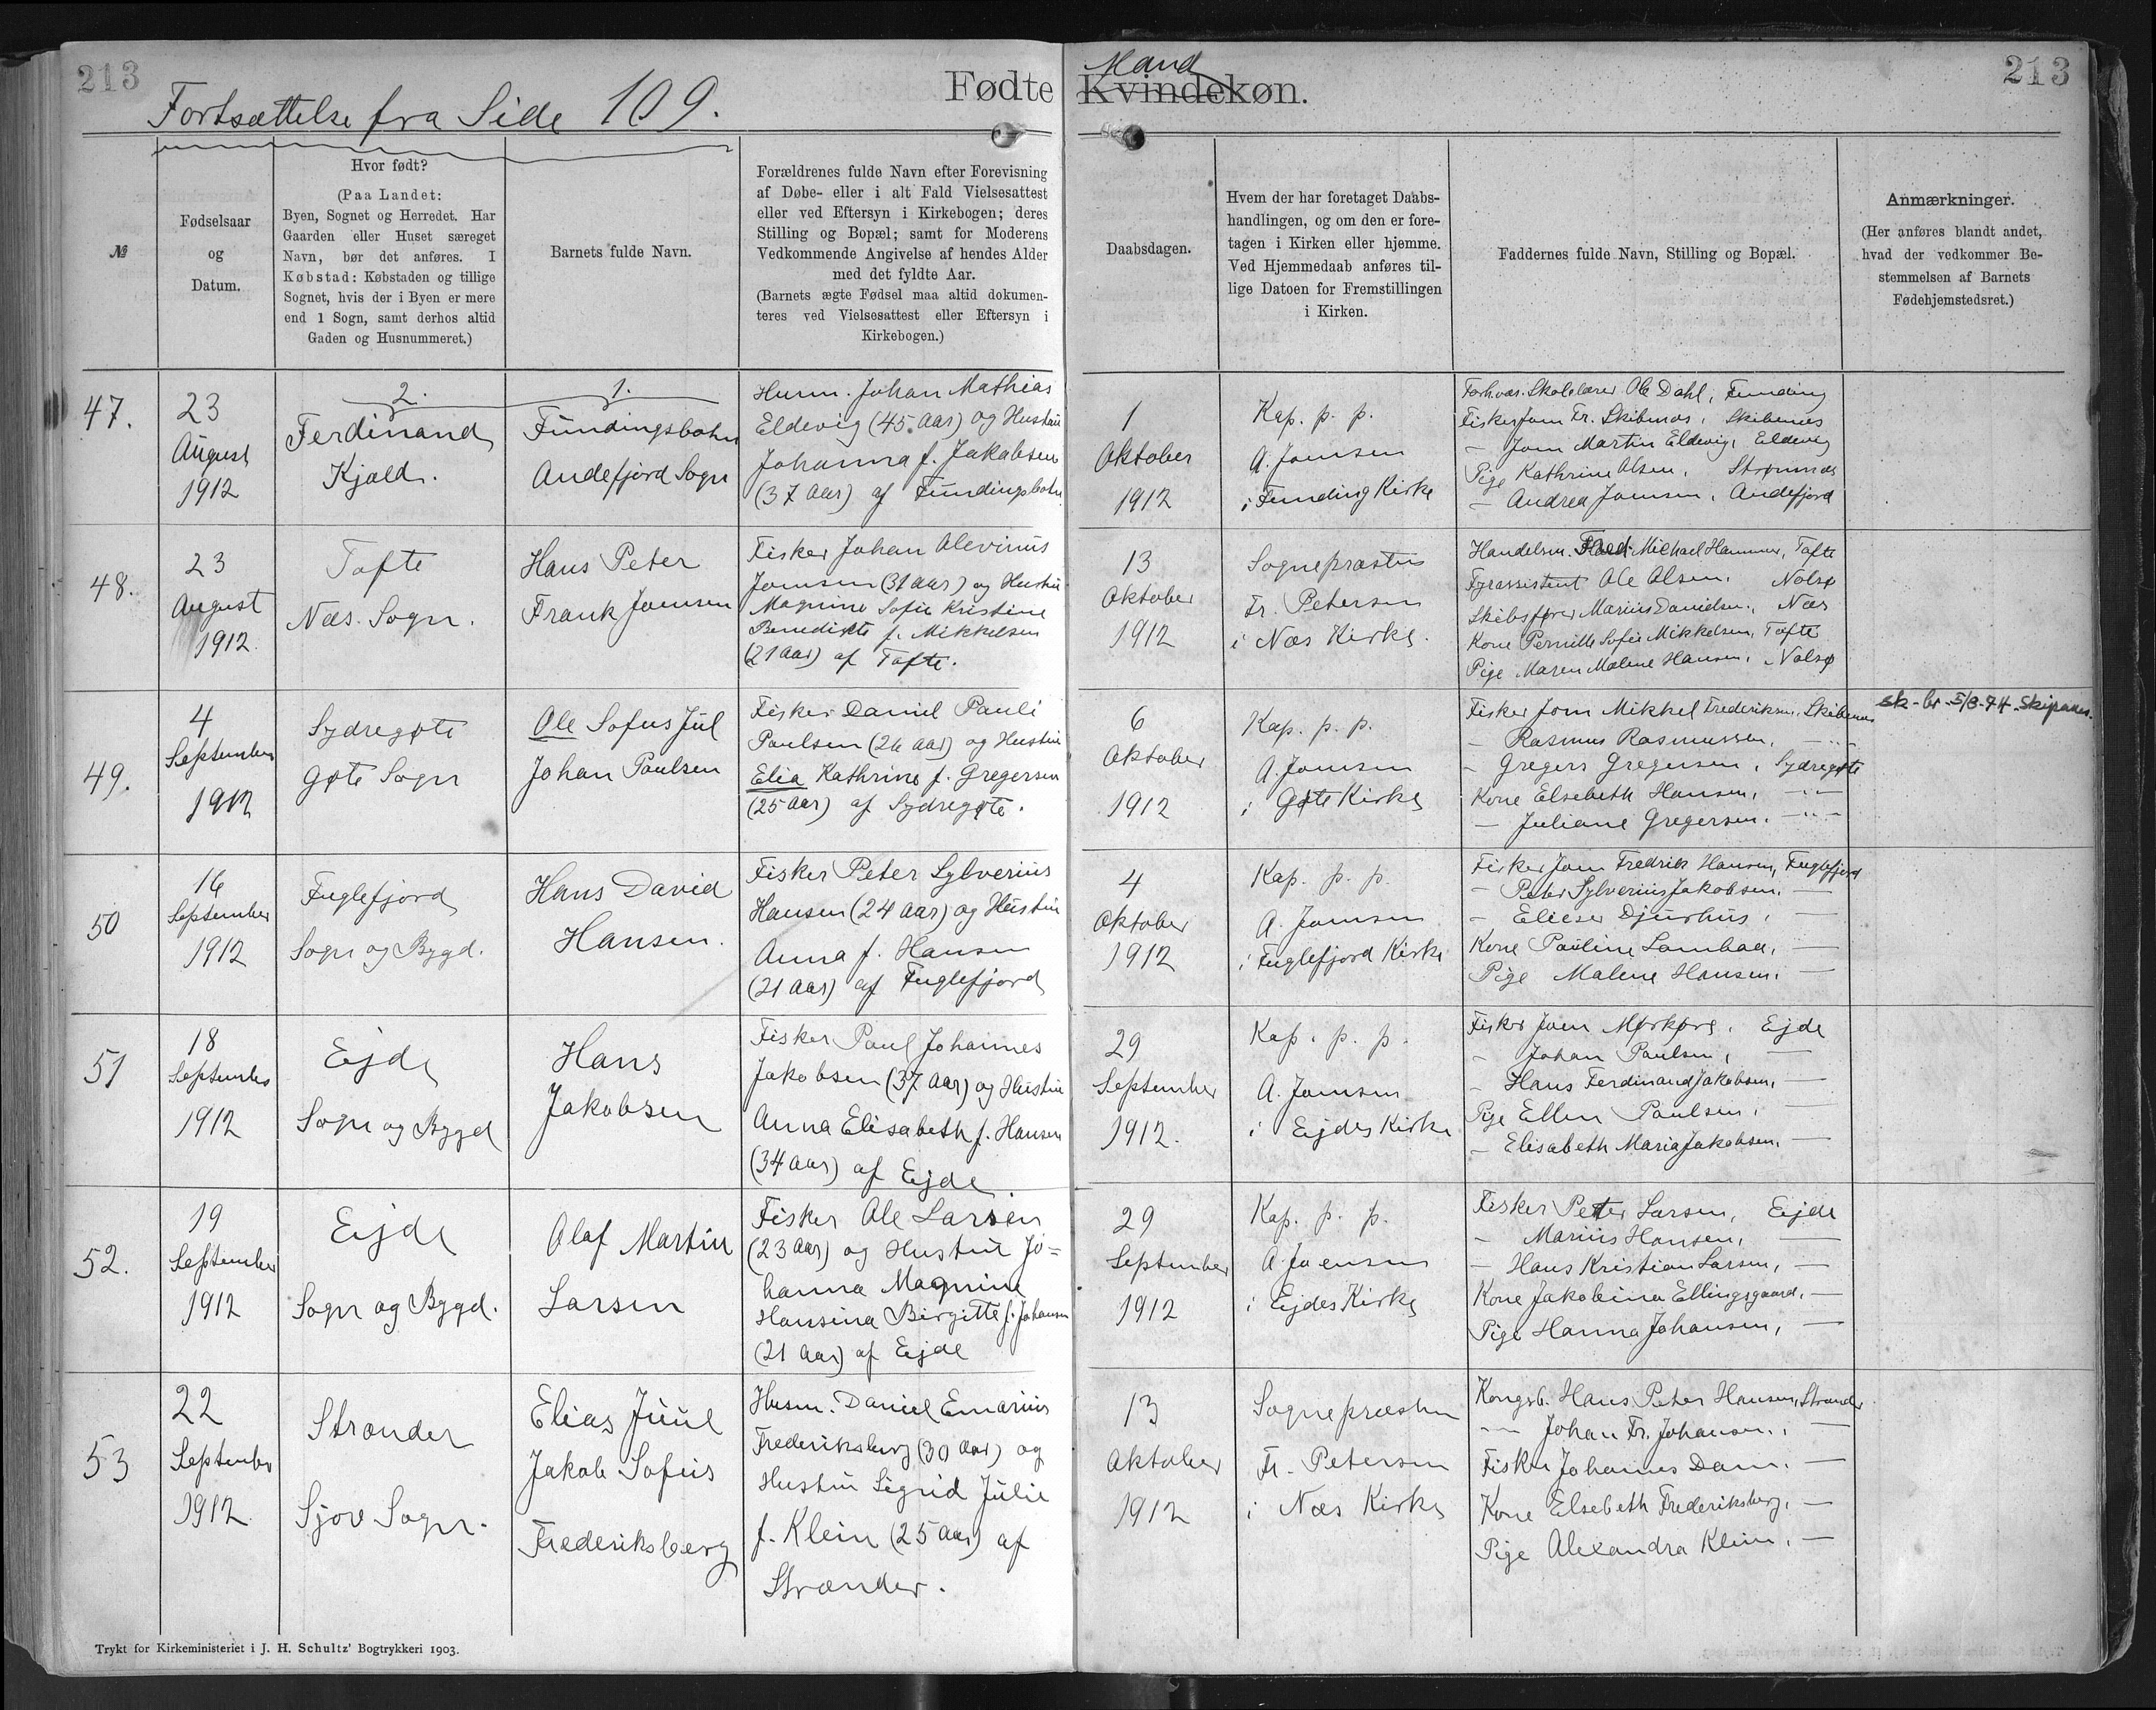 213
Fortsættelse fra Side 109.
Fødte
Mand
Kvindekøn.
213
№
Fødselsaar
og
Datum.
Hvor født?
(Paa Landet:
Byen, Sognet og Herredet. Har
Gaarden eller Huset særeget
Navn, bør det anføres. I
Købstad: Købstaden og tillige
Sognet, hvis der i Byen er mere
end 1 Sogn, samt derhos altid
Gaden og Husnummeret.)
Barnets fulde Navn.
Forældrenes fulde Navn efter Forevisning
af Døbe- eller i alt Fald Vielsesattest
eller ved Eftersyn i Kirkebogen; deres
Stilling og Bopæl; samt for Moderens
Vedkommende Angivelse af hendes Alder
med det fyldte Aar.
(Barnets ægte Fødsel maa altid dokumen-
teres ved Vielsesattest eller Eftersyn i
Kirkebogen.)
Daabsdagen.
Hvem der har foretaget Daabs-
handlingen, og om den er fore-
tagen i Kirken eller hjemme.
Ved Hjemmedaab anføres til-
lige Datoen for Fremstillingen
i Kirken.
Faddernes fulde Navn, Stilling og Bopæl.
Anmærkninger.
(Her anføres blandt andet,
hvad der vedkommer Be-
stemmelsen af Barnets
Fødehjemstedsret.)
47.
23
August
1912
2.
Ferdinand
Kjæld.
1.
Fundingsbotn
Andefjord Sogn
Husm. Johan Mathias
Eldevig (45 Aar) og Hustru
Johanna f. Jakobsen
(37 Aar) af Fundingsbotn
1
Oktober
1912
Kap. p. p.
A. Joensen
i Funding Kirke
Forhv. Skolelærer Ole Dahl, Funding
Fisker Joen Fr. Skibenæs, Skibenæs
— Joen Martin Eldevig, Eldevig
Pige Kathrine Olsen, Strømnæs
— Andrea Joensen, Andefjord
48.
23
August
1912.
Tofte
Næs. Sogn.
Hans Peter
Frank Joensen
Fisker Johan Olevinus
Joensen (31 Aar) og Hustru
Magnine Sofie Kristine
Benedikte f. Mikkelsen
(21 Aar) af Tofte.
13
Oktober
1912
Sognepræsten
Fr. Petersen
i Næs Kirke.
Handelsm. Fred. Michael Hammer, Tofte
Fyrassistent Ole Olsen, Nolsø
Skibsfører Marius Danielsen, Næs
Kone Pernille Sofie Mikkelsen, Tofte
Pige Maren Malene Hansen, Nolsø
49.
4
September
1912
Sydregøte
Gøte Sogn
Ole Sofus Jul
Johan Poulsen
Fisker Daniel Pauli
Poulsen (26 Aar) og Hustru
Elia Kathrine f. Gregersen
(25 Aar) af Sydregøte.
6
Oktober
1912
Kap. p. p.
A. Joensen
i Gøte Kirke
Fisker Joen Mikkel Frederiksen, Skibenæs
— Rasmus Rasmussen, — " —
— Gregers Gregersen, Sydregøte
Kone Elsebeth Hansen, — " —
— Juliane Gregersen. — " —
sk-br. 5/8-74 Skipanes.
50
16
September
1912
Fuglefjord
Sogn og Bygd.
Hans David
Hansen.
Fisker Peter Sylverius
Hansen (24 Aar) og Hustru
Anna f. Hansen
(21 Aar) af Fuglefjord
4
Oktober
1912
Kap. p. p.
A. Joensen
i Fuglefjord Kirke
Fisker Joen Fredrik Hansen, Fuglefjord
— Peter Sylverius Jakobsen, —
— Elieser Djurhus, —
Kone Pauline Lambaa, —
Pige Malene Hansen, —
51
18
September
1912
Ejde
Sogn og Bygd
Hans
Jakobsen
Fisker Poul Johannes
Jakobsen (37 Aar) og Hustru
Anna Elisabeth f. Hansen
(34 Aar) af Ejde.
29
September
1912.
Kap. p. p.
A. Joensen
i Ejdes Kirke
Fisker Joen Mørkøre, Ejde
— Johan Poulsen, —
— Hans Ferdinand Jakobsen, —
Pige Ellen Poulsen, —
— Elisabeth Maria Jakobsen, —
52.
19
September
1912
Ejde
Sogn og Bygd.
Olaf Martin
Larsen
Fisker Ole Larsen
(23 Aar) og Hustru Jo=
hanna Magnine
Hansina Birgitte f. Johansen
(21 Aar) af Ejde
29
September
1912
Kap. p. p.
A. Joensen
i Ejdes Kirke
Fisker Peter Larsen, Ejde
— Marius Hansen, —
— Hans Kristian Larsen, —
Kone Jakobina Ellingsgaard, —
Pige Hanna Johansen, —
53
22
September
1912.
Strænder
Sjov Sogn.
Elias Juul
Jakob Sofus
Frederiksberg
Husm. Daniel Emarius
Frederiksberg (30 Aar) og
Hustru Sigrid Julie
f. Klein (25 Aar) af
Strænder.
13
Oktober
1912
Sognepræsten
Fr. Petersen
i Næs Kirke
Kongsb. Hans Peter Hansen, Strænder
— Johan Fr. Johansen, —
Fisker Johannes Dam, —
Kone Elsebeth Frederiksberg, —
Pige Alexandra Klein, —
Trykt for Kirkeministeriet i J. H. Schultz' Bogtrykkeri 1903.